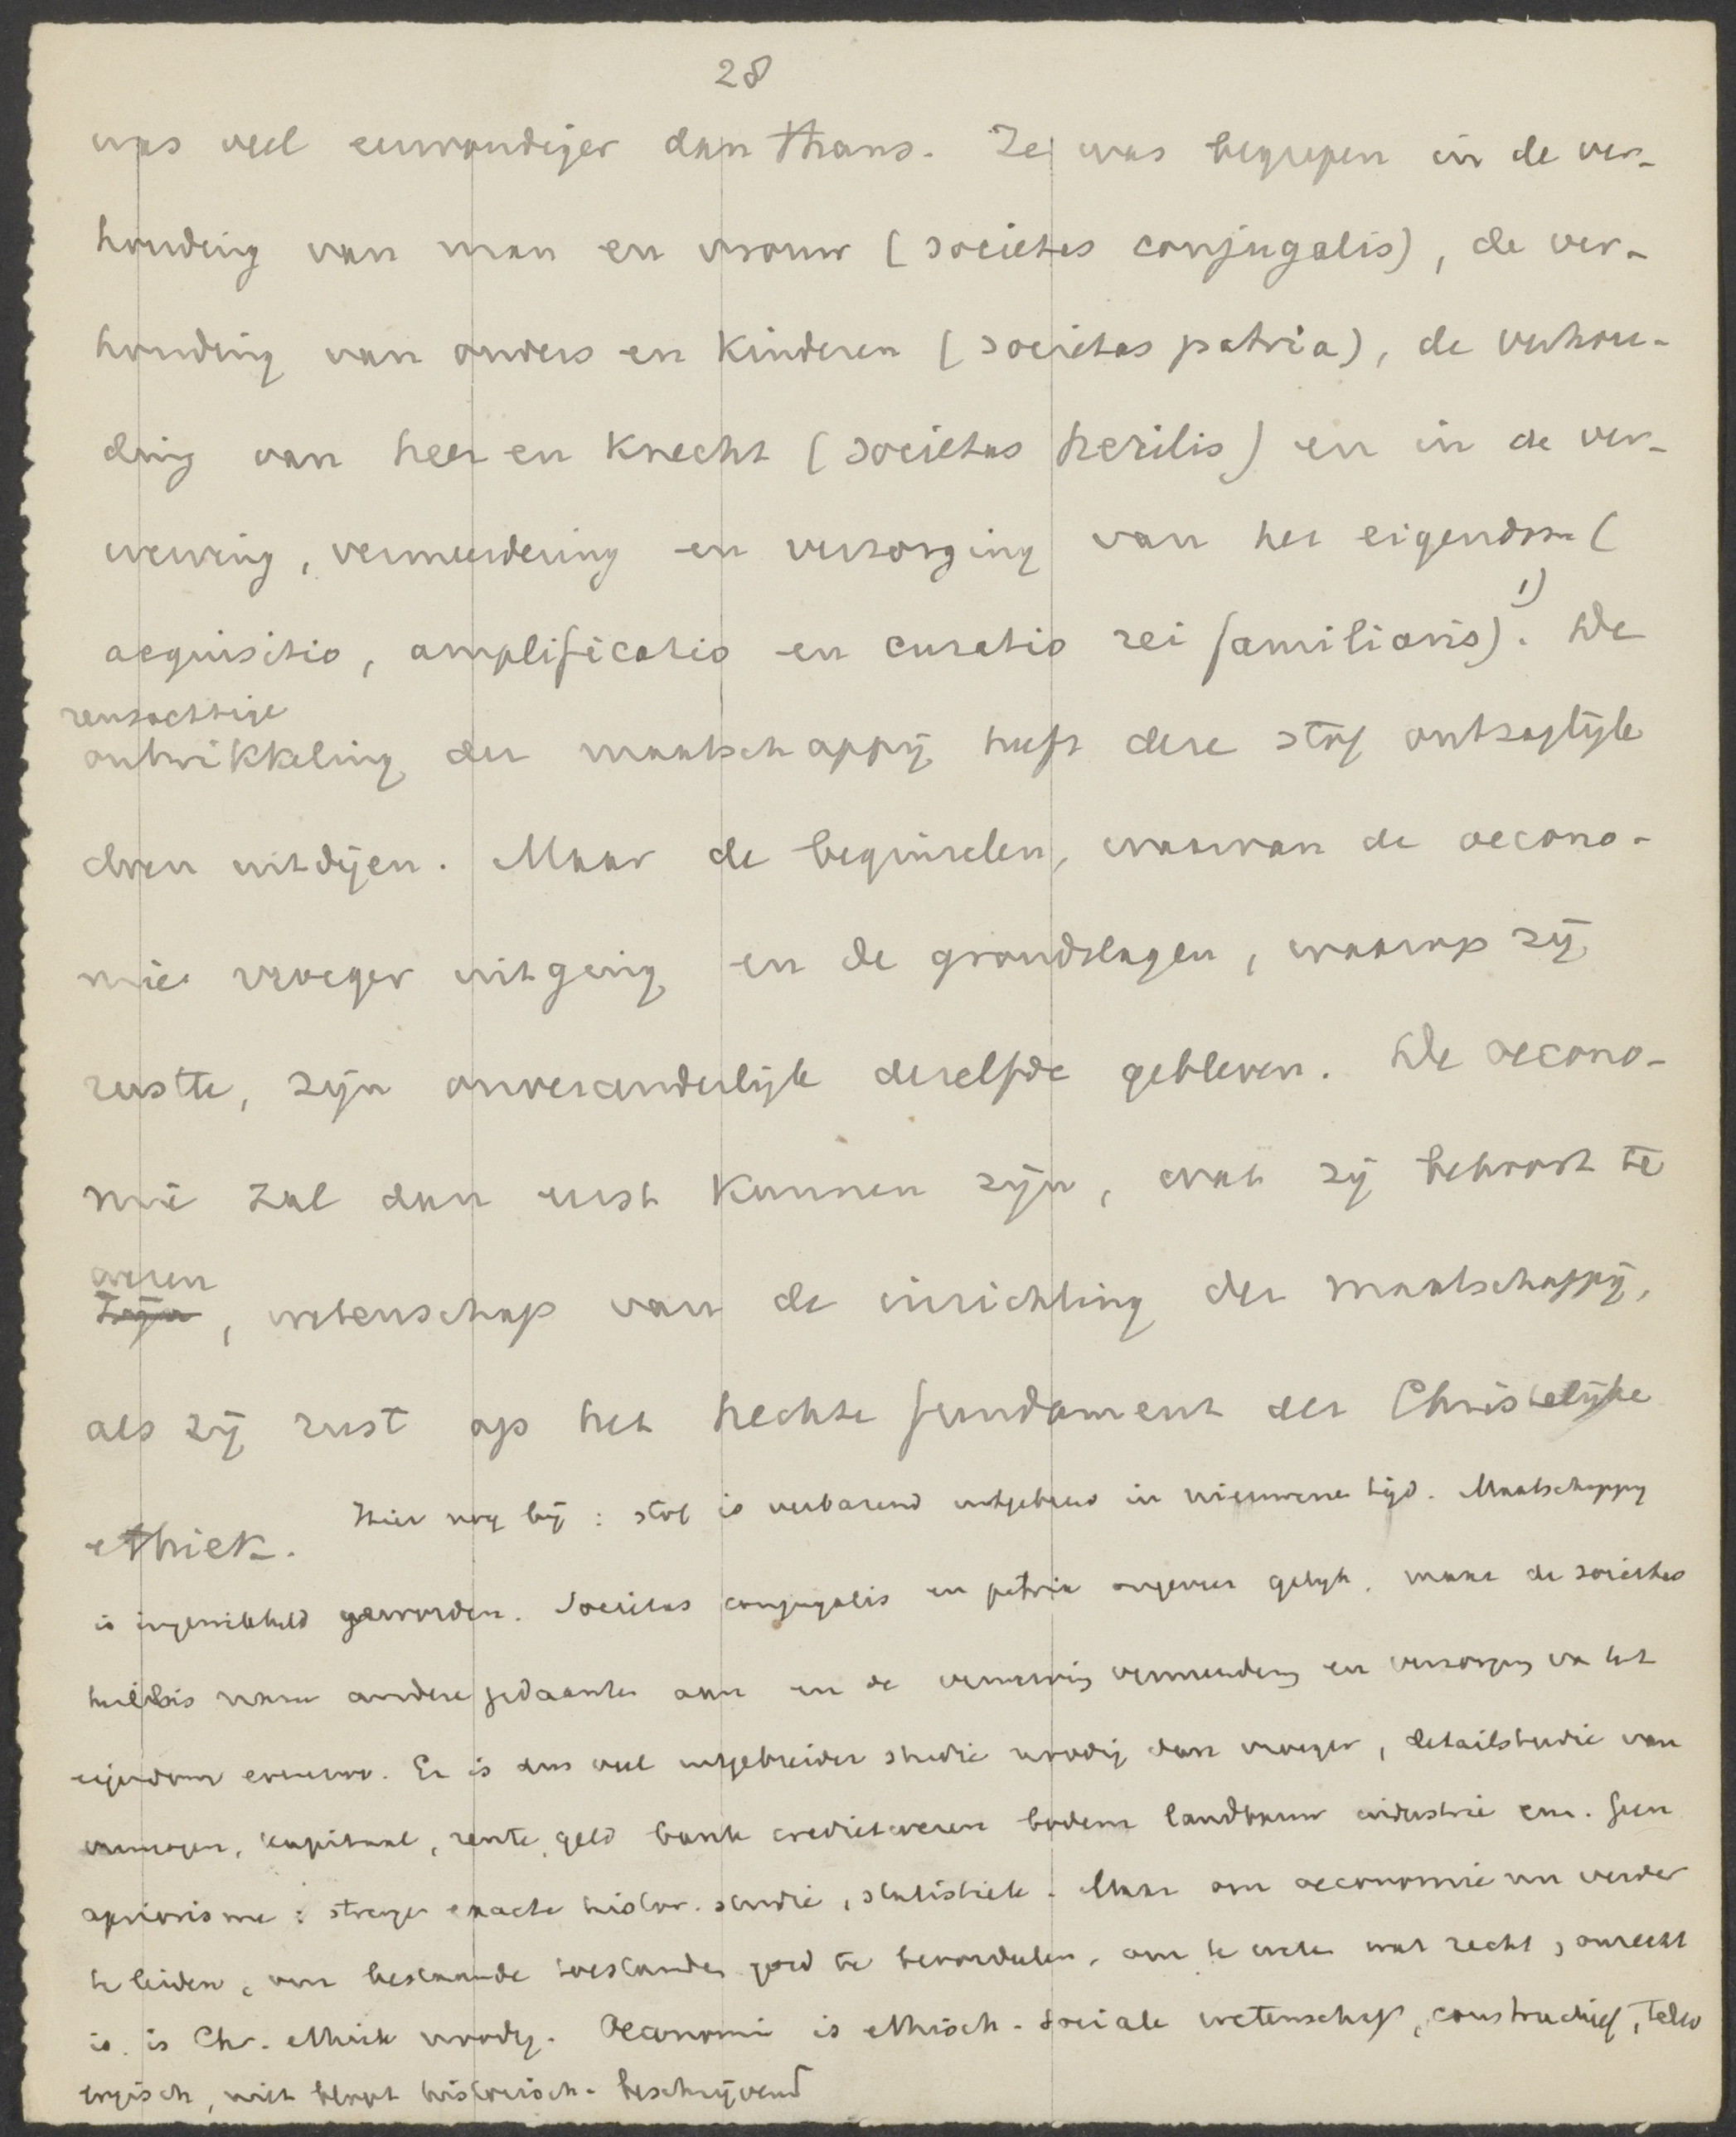 28
was veel eenvoudiger dan thans. Ze was begrepen in de ver-
houding van man en vrouw (societas conjugalis), de ver-
houding van ouders en kinderen (societas patria), de verhou-
ding van heer en knecht (societas herilis) en in de ver-
werving, vermeerdering en verzorging van het eigendom (
acquisitio, amplificatio en curatio rei familiaris).¹) De
reusachtige
ontwikkeling der maatschappij heeft deze stof ontzaglijk
doen uitdijen. Maar de beginselen, waarvan de oecono-
mie vroeger uitging en de grondslagen, waarop zij
rustte, zijn onveranderlijk dezelfde gebleven. De oecono-
mie zal dan eerst kunnen zijn, wat zij behoort te
wezen
zijn, wetenschap van de inrichting der maatschappij,
als zij rust op het hechte fundament der Christelijke
ethiek.
Hier nog bij: stof is verbazend uitgebreid in nieuwere tijd. Maatschappij
is ingewikkeld geworden. Societas conjugalis en patria ongeveer gelijk, maar de societas
herilis nam andere gedaante aan en de verwerving vermeerdering en verzorging van het
eigendom eveneens. Er is dus veel uitgebreider studie noodig dan vroeger, detailstudie van
vermogen, kapitaal, rente, geld bank credietwezen bodem landbouw industrie enz. Geen
apriorisme: strenge exacte histor. studie, statistiek. Maar om oeconomie nu verder
te leiden, om bestaande toestanden goed te beoordeelen, om te weten wat recht, onrecht
is, is Chr. ethiek noodig. Oeconomie is ethisch-sociale wetenschap, constructief, teleo
logisch, niet bloot historisch-beschrijvend